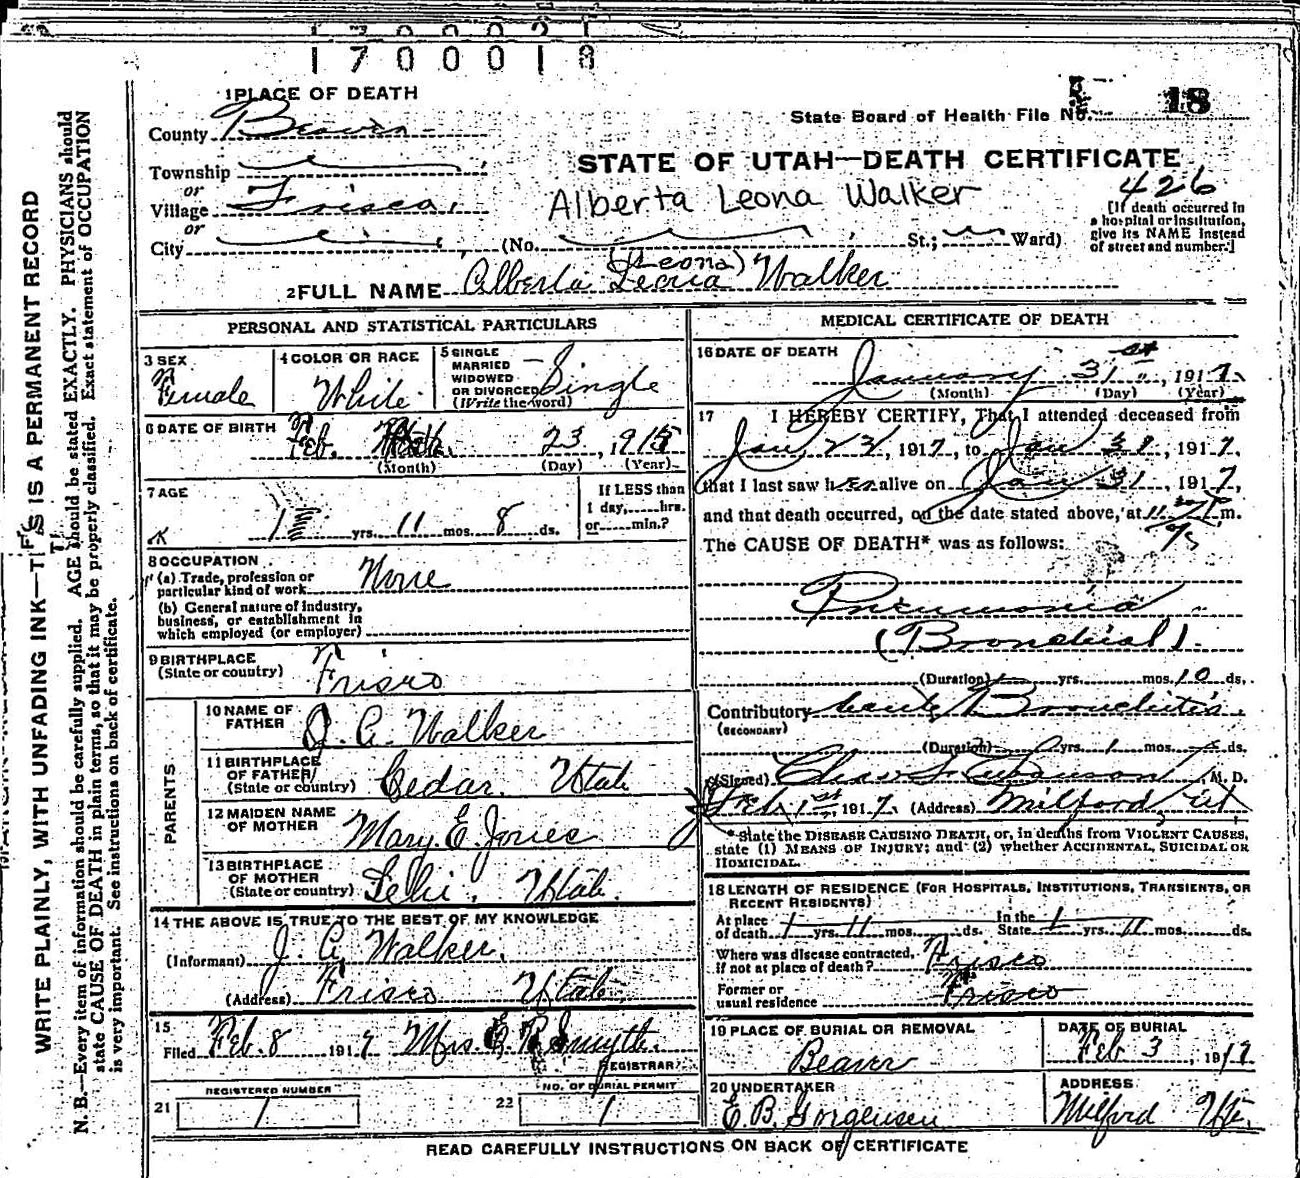 1700018
1 PLACE OF DEATH
County Beaver
State Board of Health File No. 18
Township
or
Village Frisco
or
City (No. St.; Ward)
STATE OF UTAH—DEATH CERTIFICATE
Alberta Leona Walker
426
[If death occurred in
a hospital or institution,
give its NAME instead
of street and number.]
(Leona)
2 FULL NAME Alberta Leona Walker
WRITE PLAINLY, WITH UNFADING INK—THIS IS A PERMANENT RECORD
N. B.—Every item of information should be carefully supplied. AGE should be stated EXACTLY. PHYSICIANS should
state CAUSE OF DEATH in plain terms, so that it may be properly classified. Exact statement of OCCUPATION
is very important. See instructions on back of certificate.
PERSONAL AND STATISTICAL PARTICULARS
3 SEX
Female
4 COLOR OR RACE
White
5 SINGLE
MARRIED
WIDOWED
OR DIVORCED
(Write the word)
Single
6 DATE OF BIRTH
Feb. 23, 1915
(Month) (Day) (Year)
7 AGE
1 yrs. 11 mos. 8 ds.
If LESS than
1 day, hrs.
or min.?
8 OCCUPATION
(a) Trade, profession or
particular kind of work None
(b) General nature of industry,
business, or establishment in
which employed (or employer)
9 BIRTHPLACE
(State or country) Frisco
PARENTS
10 NAME OF
FATHER J. A. Walker
11 BIRTHPLACE
OF FATHER
(State or country) Cedar. Utah
12 MAIDEN NAME
OF MOTHER Mary E. Jones
13 BIRTHPLACE
OF MOTHER
(State or country) Lehi. Utah.
14 THE ABOVE IS TRUE TO THE BEST OF MY KNOWLEDGE
(Informant) J. A. Walker.
(Address) Frisco Utah.
15
Filed Feb. 8 1917 Mrs. Smyth.
REGISTRAR
REGISTERED NUMBER
21 1
NO. OF BURIAL PERMIT
22 1
MEDICAL CERTIFICATE OF DEATH
16 DATE OF DEATH
January 31st, 1917
(Month) (Day) (Year)
17 I HEREBY CERTIFY, That I attended deceased from
Jan 22, 1917, to Jan 31, 1917,
that I last saw her alive on Jan 31, 1917,
and that death occurred, on the date stated above, at 11 m.
The CAUSE OF DEATH* was as follows:
Pneumonia
(Bronchial)
(Duration) yrs. mos. 10 ds.
Contributory Acute Bronchitis
(SECONDARY)
(Duration) yrs. 1 mos. ds.
(Signed) M. D.
Feb 1st, 1917. (Address) Milford Ut
* State the DISEASE CAUSING DEATH, or, in deaths from VIOLENT CAUSES,
state (1) MEANS OF INJURY; and (2) whether ACCIDENTAL, SUICIDAL OR
HOMICIDAL.
18 LENGTH OF RESIDENCE (FOR HOSPITALS, INSTITUTIONS, TRANSIENTS, OR
RECENT RESIDENTS)
At place
of death 1 yrs. 11 mos. ds.
In the
State 1 yrs. 11 mos. ds.
Where was disease contracted,
if not at place of death? Frisco
Former or
usual residence Frisco
19 PLACE OF BURIAL OR REMOVAL
Beaver
DATE OF BURIAL
Feb 3, 1917
20 UNDERTAKER
E. B. Gorgensen
ADDRESS
Milford Ut.
READ CAREFULLY INSTRUCTIONS ON BACK OF CERTIFICATE